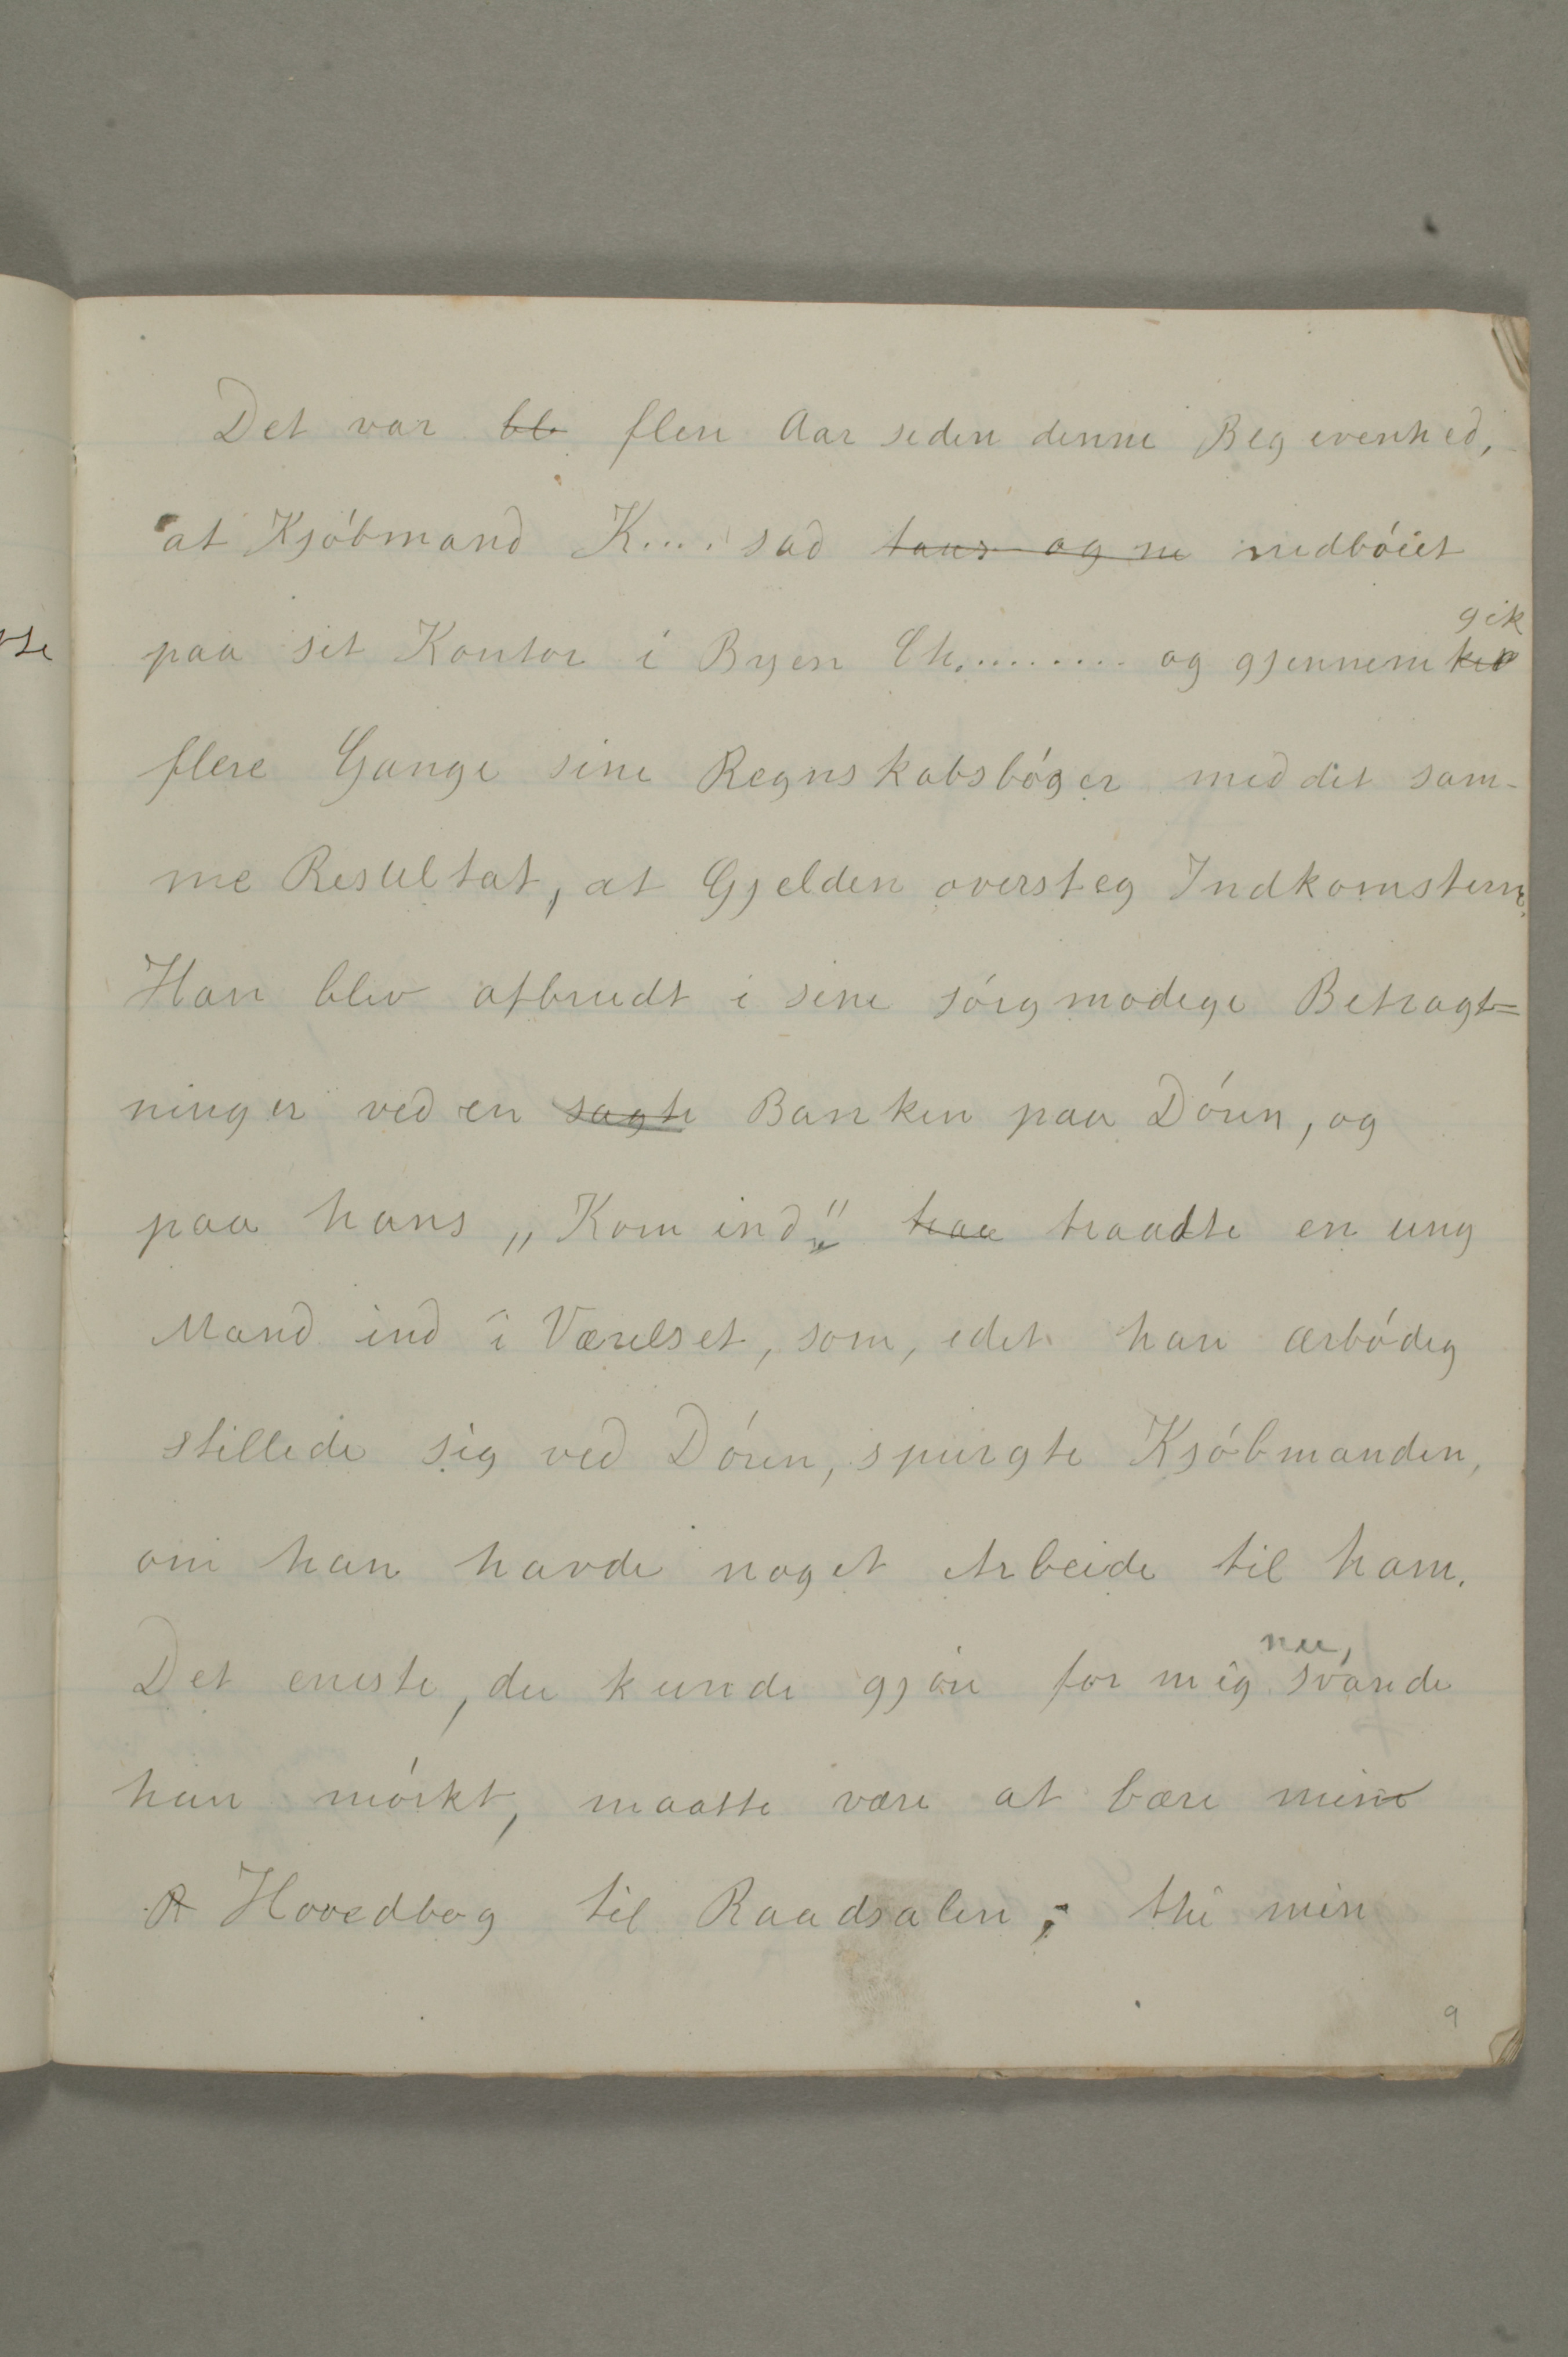 Det var bl flere Aar siden denne Begivenhed,
at Kjóbmand K.... sad taus og ne nedbóiet
gik
paa sit Kontor i Byen Ch......... og gjennem
flere Gange sine Regnskabsbóger med det sam-
me Resultat, at Gjelden oversteg Indkomsterne.
Han blev afbrudt i sine sórgmodige Betragt=
ninger ved en sagte Banken paa Dóren, og
paa hans „Kom ind" traa traadte en ung
Mand ind i Værelset, som, idet han ærbódig
stillede sig ved Dóren, spurgte Kjóbmanden,
om han havde noget Arbeide til ham.
nu,
Det eneste, du kunde gjóre for mig svarede
han mórkt, maatte være at bære mine
R Hovedbog til Raadsalen; thi min
9